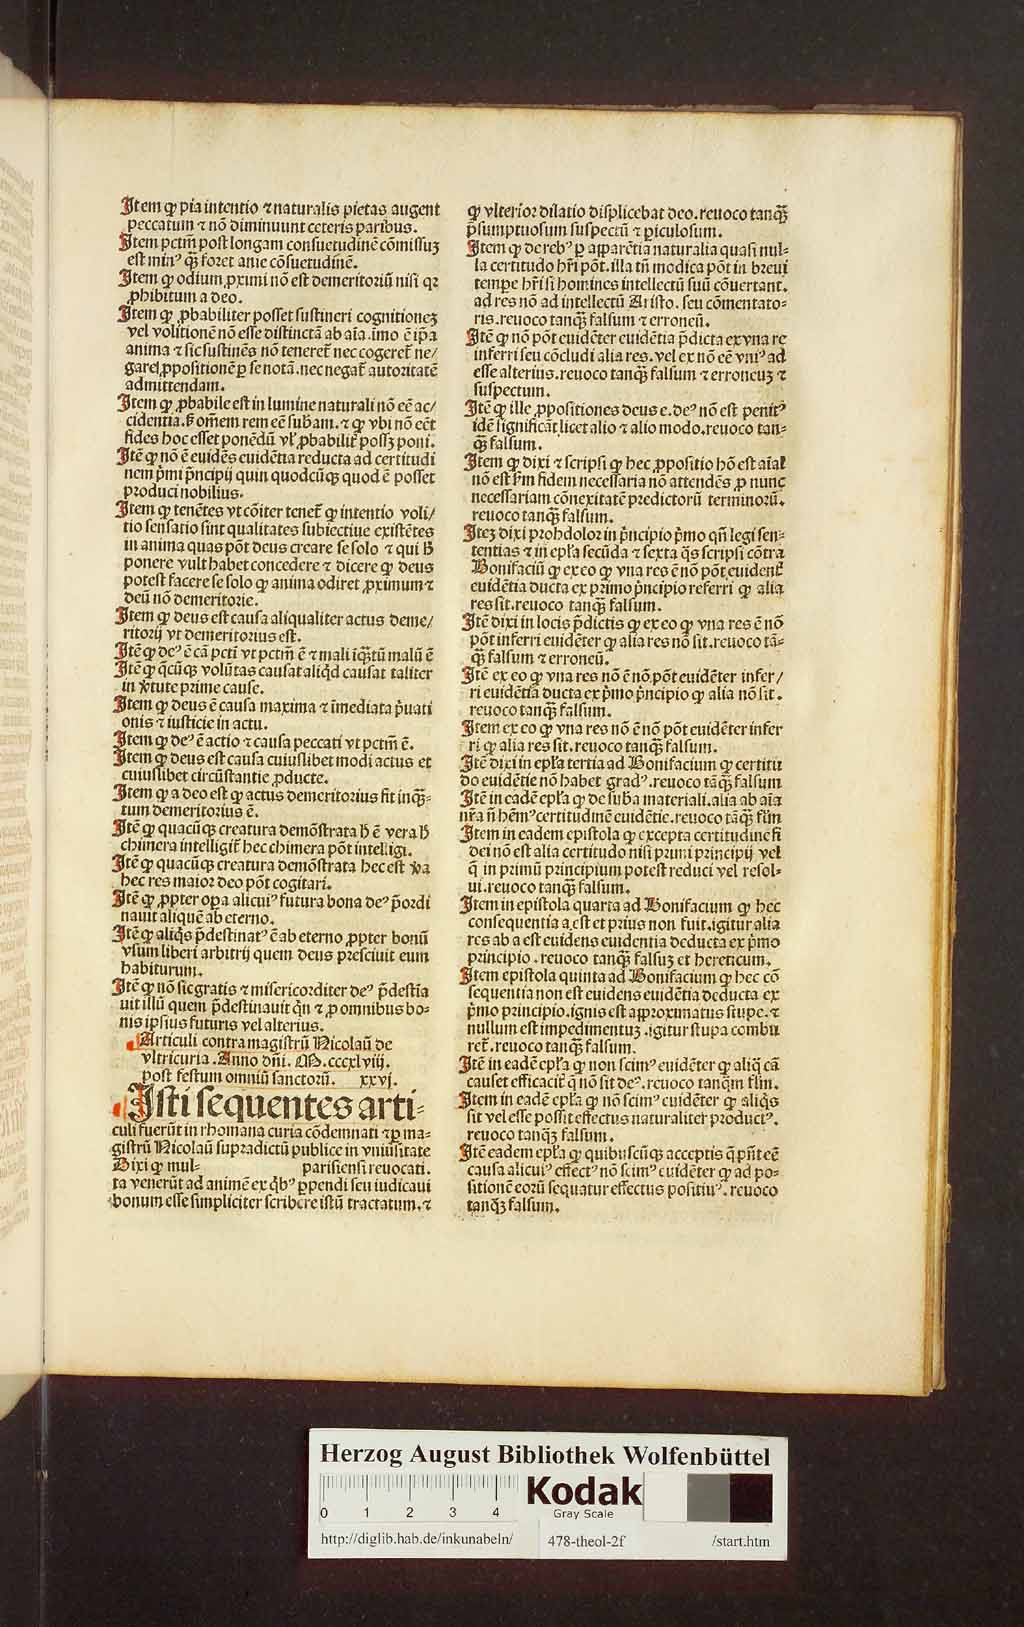 Itē ꝙ pia intentio ⁊ naturalis pietas augent
peccatum ⁊ nō diminuunt ceteris paribus.
Item pctm̄ post longam consuetudinē cōmissuꝫ
est minꝰ qꝫ̄ foret ante cōsuetudinē.
Item ꝙ odium ꝓximi nō est demeritoriū nisi qꝛ
ꝓhibitum a deo.
Item ꝙ ꝓbabiliter posset sustineri cognitioneꝫ
vel volitionē nō esse distinctā ab aīa. īmo ē ip̄a
anima ⁊ sic sustinēs nō teneret̄ nec cogeret̄ ne/
gare ꝓpositionē ꝑ se notā. nec negat̄ autoritatē
admittendam.
Item ꝙ ꝓbabile est in lumine naturali nō eē ac/
cidentia. ẜ om̄em rem eē sub̄am. ⁊ ꝙ vbi nō eēt
fides hoc esset ponēdū vl̓ ꝓbabilit̓ possꝫ poni.
Itē ꝙ nō ē euidēs euidētia reducta ad certitudi
nem p̄mi p̄ncipij quin quodcūqꝫ quod ē posset
produci nobilius.
Item ꝙ tenētes vt cōiter tenet̄ ꝙ intentio voli/
tio sensatio sint qualitates subiectiue existētes
in anima quas pōt deus creare se solo ⁊ qui h̄
ponere vult habet concedere ⁊ dicere ꝙ deus
potest facere se solo ꝙ anima odiret ꝓximum ⁊
deū nō demeritorie.
Item ꝙ deus est causa aliqualiter actus deme/
ritorij vt demeritorius est.
Itē ꝙ deꝰ ē cā pcti vt pctm̄ ē ⁊ mali inqꝫ̄tū malū ē
Itē ꝙ qcūqꝫ volūtas causat aliqd causat taliter
in v̓tute prime cause.
Item ꝙ deus ē causa maxima ⁊ īmediata p̓uati
onis ⁊ iusticie in actu.
Item ꝙ deꝰ ē actio ⁊ causa peccati vt pctm̄ ē.
Item ꝙ deus est causa cuiuslibet modi actus et
cuiuslibet circūstantie ꝓducte.
Item ꝙ a deo est ꝙ actus demeritorius fit inqꝫ̄-
tum demeritorius ē.
Itē ꝙ quacūqꝫ creatura demōstrata h̄ ē vera h̄
chimera intelligit̄ hec chimera pōt intelligi.
Itē ꝙ quacūqꝫ creatura demōstrata hec est v̓a
hec res maior deo pōt cogitari.
Itē ꝙ ꝓpter oꝑa alicuiꝰ futura bona deꝰ p̄ordi
nauit aliquē ab eterno.
Itē ꝙ aliqs p̄destinatꝰ ē ab eterno ꝓpter bonū
vsum liberi arbitrij quem deus presciuit eum
habiturum.
Itē ꝙ nō sic gratis ⁊ misericorditer deꝰ p̄destīa
uit illū quem p̄destinauit qn̄ ⁊ ꝓ omnibus bo-
nis ipsius futuris vel alterius.
Articuli contra magistrū Nicolaū de
vltricuria. Anno dn̄i. M. cccxlviij.
post festum omniū sanctorū. xxvj.
Isti sequentes arti-
culi fuerūt in rhomana curia cōdemnati ⁊ ꝑ ma-
gistrū Nicolaū supradictū publice in vniūsitate
Dixi ꝙ mul- parisiensi reuocati.
ta venerūt ad animē ex qbꝰ ꝑpendi seu iudicaui
bonum esse simpliciter scribere istū tractatum. ⁊
ꝙ vlterior dilatio displicebat deo. reuoco tanqꝫ̄
p̄sumptuosum suspectū ⁊ ꝑiculosum.
Item ꝙ de rebꝰ ꝑ apparētia naturalia quasi nul-
la certitudo hr̄i pōt. illa tn̄ modica pōt in breui
tempe hr̄i si homines intellectū suū cōuertant.
ad res nō ad intellectū Aristo. seu cōmentato-
ris. reuoco tanqꝫ̄ falsum ⁊ erroneū.
Itē ꝙ nō pōt euidēter euidētia p̄dicta ex vna re
inferri seu cōcludi alia res. vel ex nō eē vniꝰ ad
esse alterius. reuoco tanqꝫ̄ falsum ⁊ erroneuꝫ ⁊
suspectum.
Itē ꝙ ille ꝓpositiones deus e. deꝰ nō est penitꝰ
idē significāt licet alio ⁊ alio modo. reuoco tan-
qꝫ̄ falsum.
Item ꝙ dixi ⁊ scripsi ꝙ hec ꝓpositio hō est aīal
nō est ẜm fidem necessaria nō attendēs ꝓ nunc
necessariam cōnexitatē predictorū terminorū.
reuoco tanqꝫ̄ falsum.
Iteꝫ dixi prohdolor in p̄ncipio p̄mo qn̄ legi sen-
tentias ⁊ in epl̓a secūda ⁊ sexta qs̄ scripsi cōtra
Bonifaciū ꝙ ex eo ꝙ vna res ē nō pōt euident̓
euidētia ducta ex primo p̄ncipio referri ꝙ alia
res sit. reuoco tanqꝫ̄ falsum.
Itē dixi in locis p̄dictis ꝙ ex eo ꝙ vna res ē nō
pōt inferri euidēter ꝙ alia res nō sit. reuoco tā-
qꝫ̄ falsum ⁊ erroneū.
Itē ex eo ꝙ vna res nō ē nō pōt euidēter infer/
ri euidētia ducta ex p̄mo p̄ncipio ꝙ alia nō sit.
reuoco tanqꝫ̄ falsum.
Item ex eo ꝙ vna res nō ē nō pōt euidēter infer
ri ꝙ alia res sit. reuoco tanqꝫ̄ falsum.
Itē dixi in epl̓a tertia ad Bonifacium ꝙ certitu
do euidētie nō habet gradꝰ. reuoco tāqꝫ̄ falsum
Itē in eadē epl̓a ꝙ de sub̄a materiali. alia ab aīa
nr̄a n̄ hēmꝰ certitudinē euidētie. reuoco tāqꝫ̄ flm̄
Item in eadem epistola ꝙ excepta certitudinē fi
dei nō est alia certitudo nisi primi principij vel
q̄ in primū principium potest reduci vel resol-
ui. reuoco tanqꝫ̄ falsum.
Item in epistola quarta ad Bonifacium ꝙ hec
consequentia a. est et prius non fuit. igitur alia
res ab a est euidens euidentia deducta ex p̄mo
principio. reuoco tanqꝫ̄ falsuꝫ et hereticum.
Item epistola quinta ad Bonifacium ꝙ hec cō
sequentia non est euidens euidētia deducta ex
p̄mo principio. ignis est approximatus stupe. ⁊
nullum est impedimentuꝫ. igitur stupa combu
ret̄. reuoco tanqꝫ̄ falsum.
Itē in eadē epl̓a ꝙ non scimꝰ euidēter ꝙ aliq̄ cā
causet efficacit̓ q̄ nō sit deꝰ. reuoco tanqꝫ̄ flm̄.
Item in eadē epl̓a ꝙ nō scimꝰ euidēter ꝙ aliqs
sit vel esse possit effectus naturaliter productꝰ.
reuoco tanqꝫ̄ falsum.
Itē eadem epl̓a ꝙ quibuscūqꝫ acceptis q̄ pn̄t eē
causa alicuiꝰ effectꝰ nō scimꝰ euidēter ꝙ ad po-
sitionē eorū sequatur effectus positiuꝰ. reuoco
tanqꝫ̄ falsum.
Herzog August Bibliothek Wolfenbüttel
0 1 2 3 4
Kodak
Gray Scale
http://diglib.hab.de/inkunabeln/ 478-theol-2f /start.htm